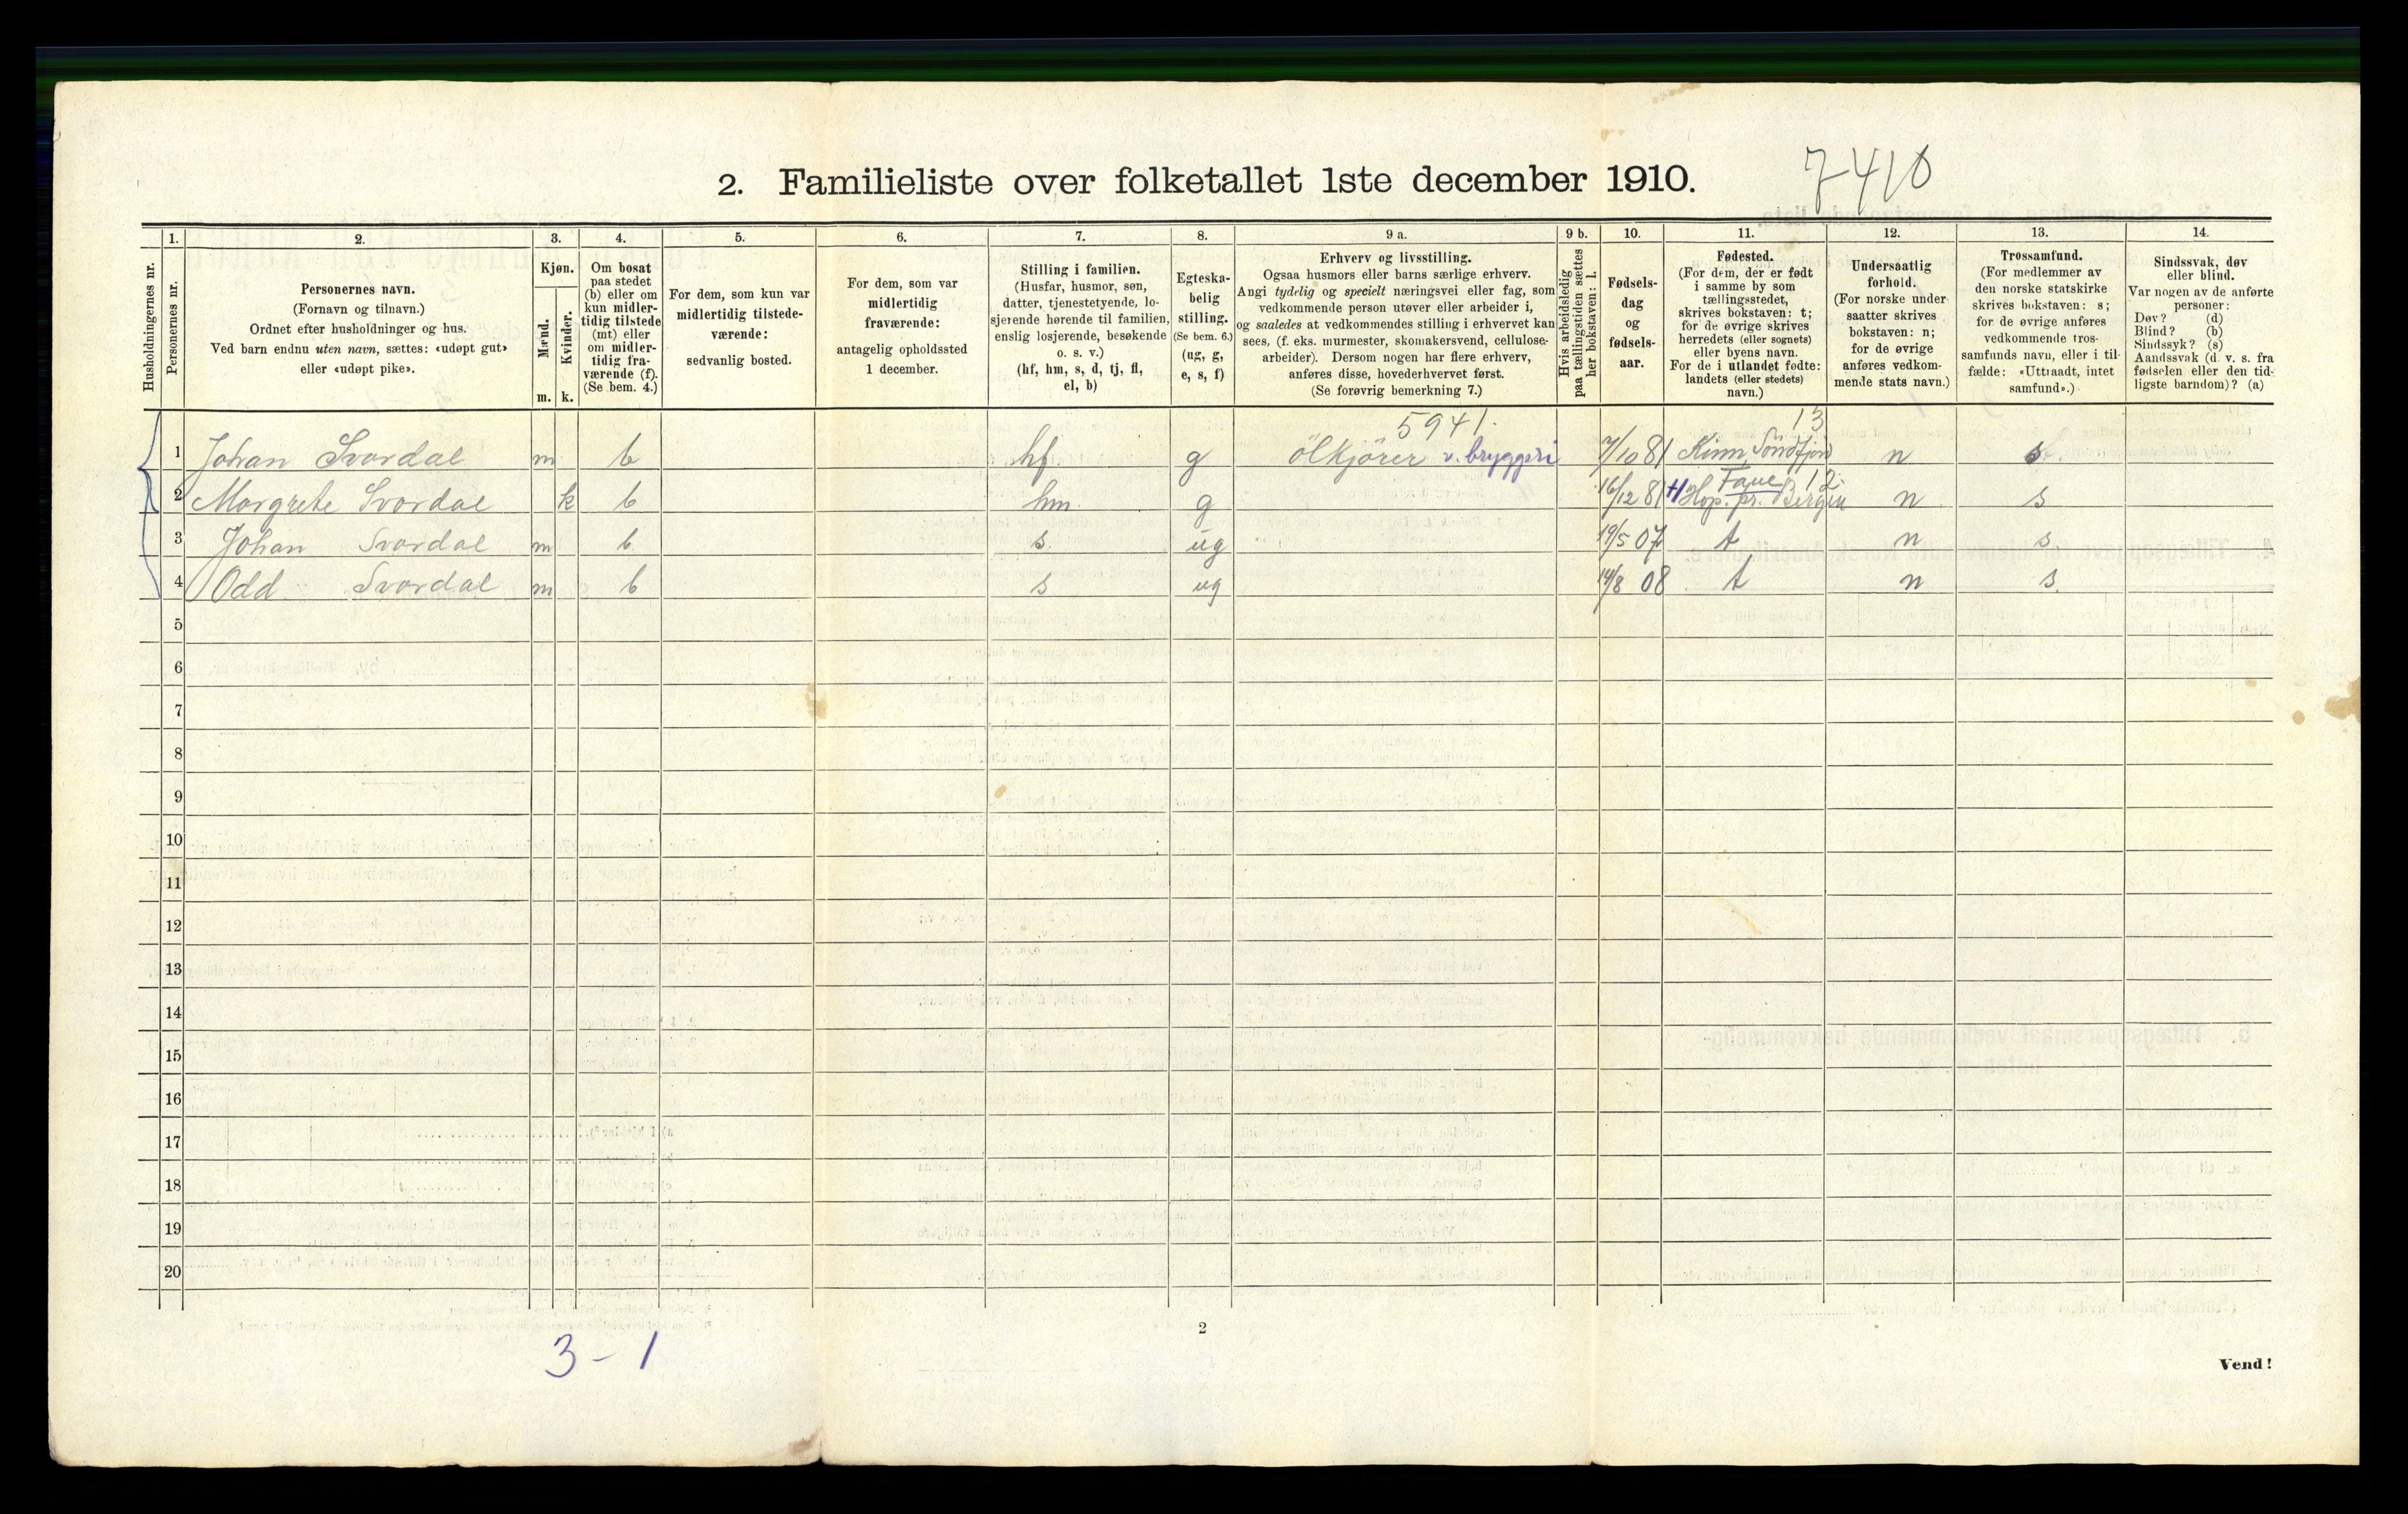 2. Familieliste over folketallet 1ste december 1910.
7410
Husholdningernes nr.
1.
Personernes nr.
2.
Personernes navn.
(Fornavn og tilnavn.)
Ordnet efter husholdninger og hus.
Ved barn endnu uten navn, sættes: «udøpt gut»
eller «udøpt pike».
3.
Kjøn.
Mænd.
m.
Kvinder.
k.
4.
Om bosat
paa stedet
(b) eller om
kun midler-
tidig tilstede
(mt) eller
om midler-
tidig fra-
værende (f).
(Se bem. 4.)
5.
For dem, som kun var
midlertidig tilstede-
værende:
sedvanlig bosted.
6.
For dem, som var
midlertidig
fraværende:
antagelig opholdssted
1 december.
7.
Stilling i familien.
(Husfar, husmor, søn,
datter, tjenestetyende, lo-
sjerende hørende til familien,
enslig losjerende, besøkende
o. s. v.)
(hf, hm, s, d, tj, fl,
el, b)
8.
Egteska-
belig
stilling.
(Se bem. 6.)
(ug, g,
e, s, f)
9 a.
Erhverv og livsstilling.
Ogsaa husmors eller barns særlige erhverv.
Angi tydelig og specielt næringsvei eller fag, som
vedkommende person utøver eller arbeider i,
og saaledes at vedkommendes stilling i erhvervet kan
sees, (f. eks. murmester, skomakersvend, cellulose-
arbeider). Dersom nogen har flere erhverv,
anføres disse, hovederhvervet først.
(Se forøvrig bemerkning 7.)
9 b.
Hvis arbeidsledig
paa tællingstiden sættes
her bokstaven: l.
10.
Fødsels-
dag
og
fødsels-
aar.
11.
Fødested.
(For dem, der er født
i samme by som
tællingsstedet,
skrives bokstaven: t;
for de øvrige skrives
herredets (eller sognets)
eller byens navn.
For de i utlandet fødte:
landets (eller stedets)
navn.)
12.
Undersaatlig
forhold.
(For norske under-
saatter skrives
bokstaven: n;
for de øvrige
anføres vedkom-
mende stats navn.)
13.
Trossamfund.
(For medlemmer av
den norske statskirke
skrives bokstaven: s;
for de øvrige anføres
vedkommende tros-
samfunds navn, eller i til-
fælde: «Uttraadt, intet
samfund».)
14.
Sindssvak, døv
eller blind.
Var nogen av de anførte
personer:
Døv? (d)
Blind? (b)
Sindssyk? (s)
Aandssvak (d. v. s. fra
fødselen eller den tid-
ligste barndom)? (a)
5941. 13
1 Johan Svordal m b hf g ölkjörer v. bryggeri 7/10 81 Kinn Söndfjord n s
Fane 12
2 Margrete Svordal k b hm g 16/12 81 Hop. pr. Bergen n s
3 Johan Svordal m b s ug 19/5 07 t n s
4 Odd Svordal m b s ug 14/8 08 t n s
5
6
7
8
9
10
11
12
13
14
15
16
17
18
19
20
3 - 1
2
Vend!